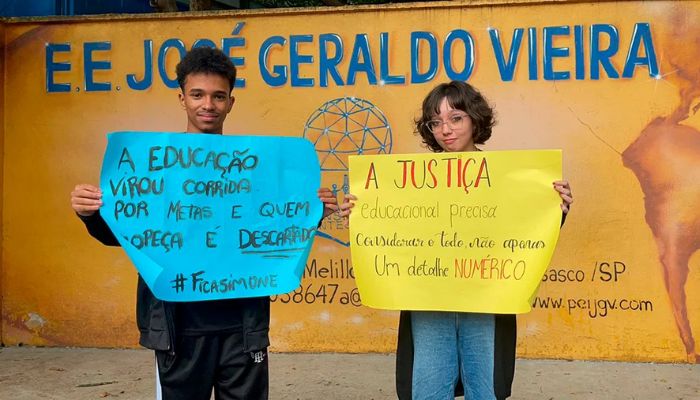 E.E. JOSÉ GERALDO VIEIRA
A EDUCAÇÃO
VIROU CORRIDA
POR METAS E QUEM
TROPEÇA É DESCARTADO
#FICASIMONE
A JUSTIÇA
educacional precisa
Considerar o todo, não apenas
Um detalhe NUMÉRICO
Melille
sasco /SP
038647a@
www.peijgv.com